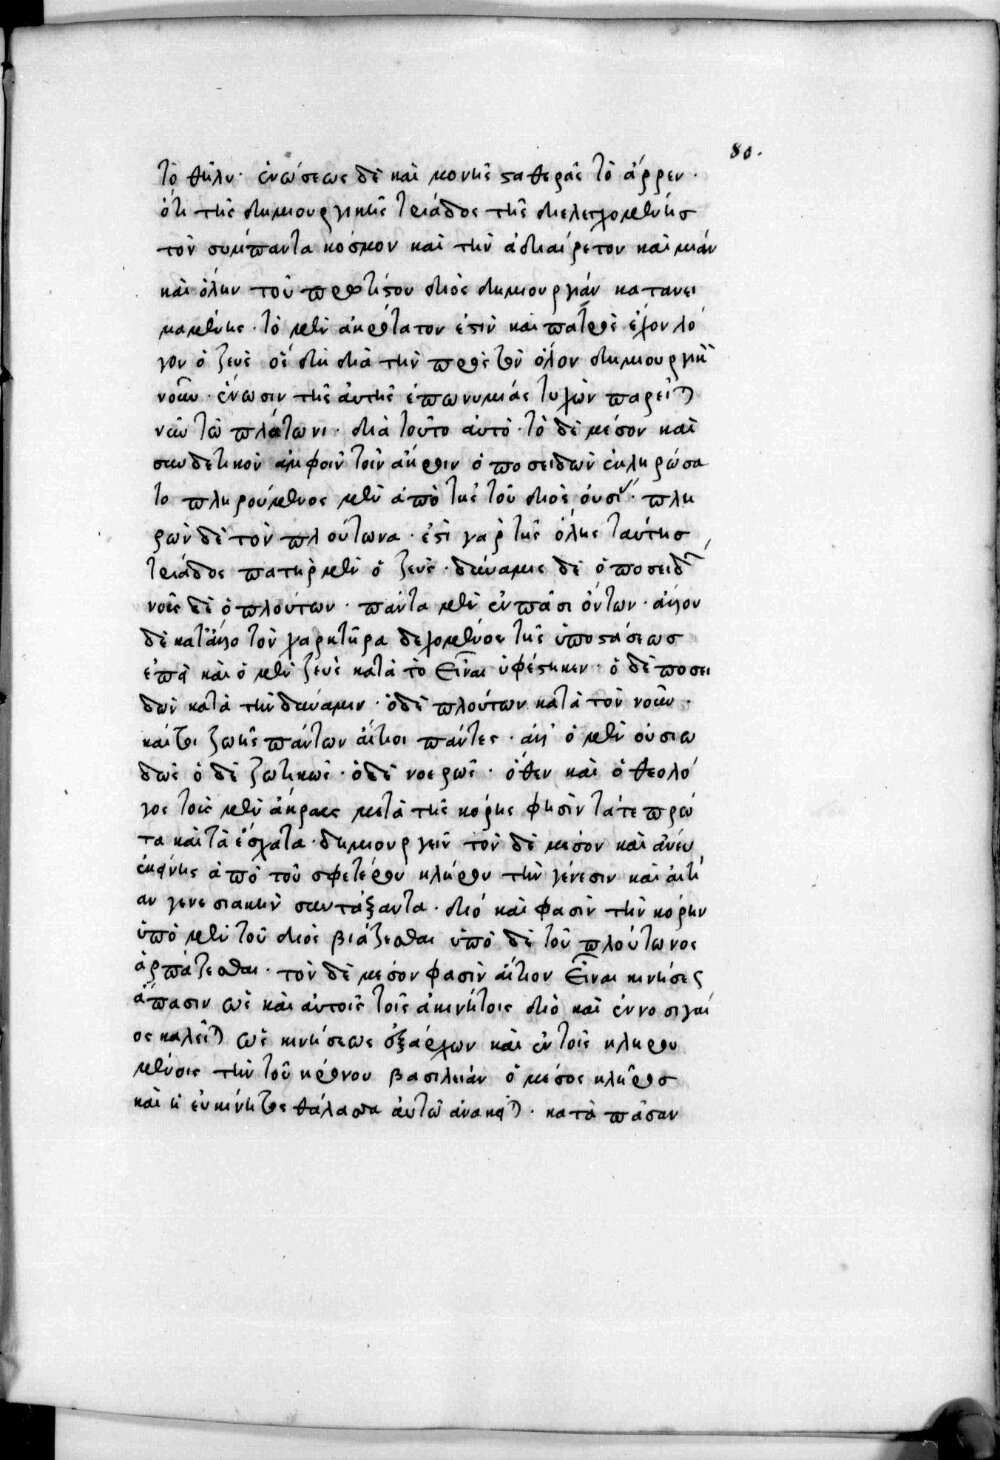 80.
τὸ θῆλυ· ἑνώσεως δὲ καὶ μονῆς σταθερᾶς τὸ ἄρρεν·
ὅτι τῆς δημιουργικῆς τριάδος τῆς διελεγχομένης
τὸν σύμπαντα κόσμον καὶ τὴν ἀδιαίρετον καὶ μιάν
καὶ ὅλην τοῦ πρωτίστου διὸς δημιουργίαν κατανει
μαμένης· τὸ μὲν ἀκρότατον ἐστὶν καὶ πατρὸς ἔχον λό
γον ὁ ζεὺς ὃς δὴ διὰ τὴν πρὸς τὸν ὅλον δημιουργικὸν
νοῦν· ἕνωσιν τῆς αὐτῆς ἐπωνυμίας τυχὼν παρεῖται
νῶν τῶ πλάτωνι· διὰ τοῦτο αὐτὸ· τὸ δὲ μέσον καὶ
συνδετικὸν ἀμφοῖν τοῖν ἄκροιν ὁ ποσειδῶν ἐκληρώσα
το πληρούμενος μὲν ἀπὸ τῆς τοῦ διὸς οὐσίας· πλη
ρῶν δὲ τὸν πλούτωνα· ἐστὶ γὰρ τῆς ὅλης ταύτης
τριάδος πατὴρ μὲν ὁ ζεὺς· δύναμις δὲ ὁ ποσειδῶν
νοῦς δὲ ὁ πλούτων· πάντα μὲν ἐν πᾶσι ὄντων· ἄλλον
δὲ κατ' ἄλλο τὸν χαρακτῆρα δεχομένου τῆς ὑποστάσεως
ἐπεὶ καὶ ὁ μὲν ζεὺς κατὰ τὸ εἶναι ὑφέστηκεν· ὁ δὲ ποσει
δῶν κατὰ τὴν δύναμιν· ὁ δὲ πλούτων κατὰ τὸν νοῦν·
καίτοι ζωῆς πάντων αἴτιοι πάντες· ἀλλ' ὁ μὲν οὐσιω
δῶς ὁ δὲ ζωτικῶς· ὁ δὲ νοερῶς· ὅθεν καὶ ὁ θεολό
γος τοὺς μὲν ἄκρους μετὰ τῆς κόρης φησὶν τά τε πρῶ
τα καὶ τὰ ἔσχατα· δημιουργεῖν τὸν δὲ μέσον καὶ ἄνευ
ἐκείνης ἀπὸ τοῦ σφετέρου κλήρου τὴν γένεσιν καὶ αἰτί
αν γενεσιακὴν συντάξαντα· διὸ καὶ φασὶν τὴν κόρην
ὑπὸ μὲν τοῦ διὸς βιάζεσθαι ὑπὸ δὲ τοῦ πλούτωνος
ἁρπάζεσθαι· τὸν δὲ μέσον φασὶν αἴτιον εἶναι κινήσεως
ἅπασιν ὡς καὶ αὐτοῖς τοῖς ἀκινήτοις διὸ καὶ ἐννοσίγαι
ος καλεῖται ὡς κινήσεως ἐξάρχων καὶ ἐν τοῖς κληρου
μένοις τὴν τοῦ κρόνου βασιλείαν ὁ μέσος κλῆρος
καὶ ἡ εὐκίνητος θάλασσα αὐτῶ ἀνακεῖται· κατὰ πᾶσαν